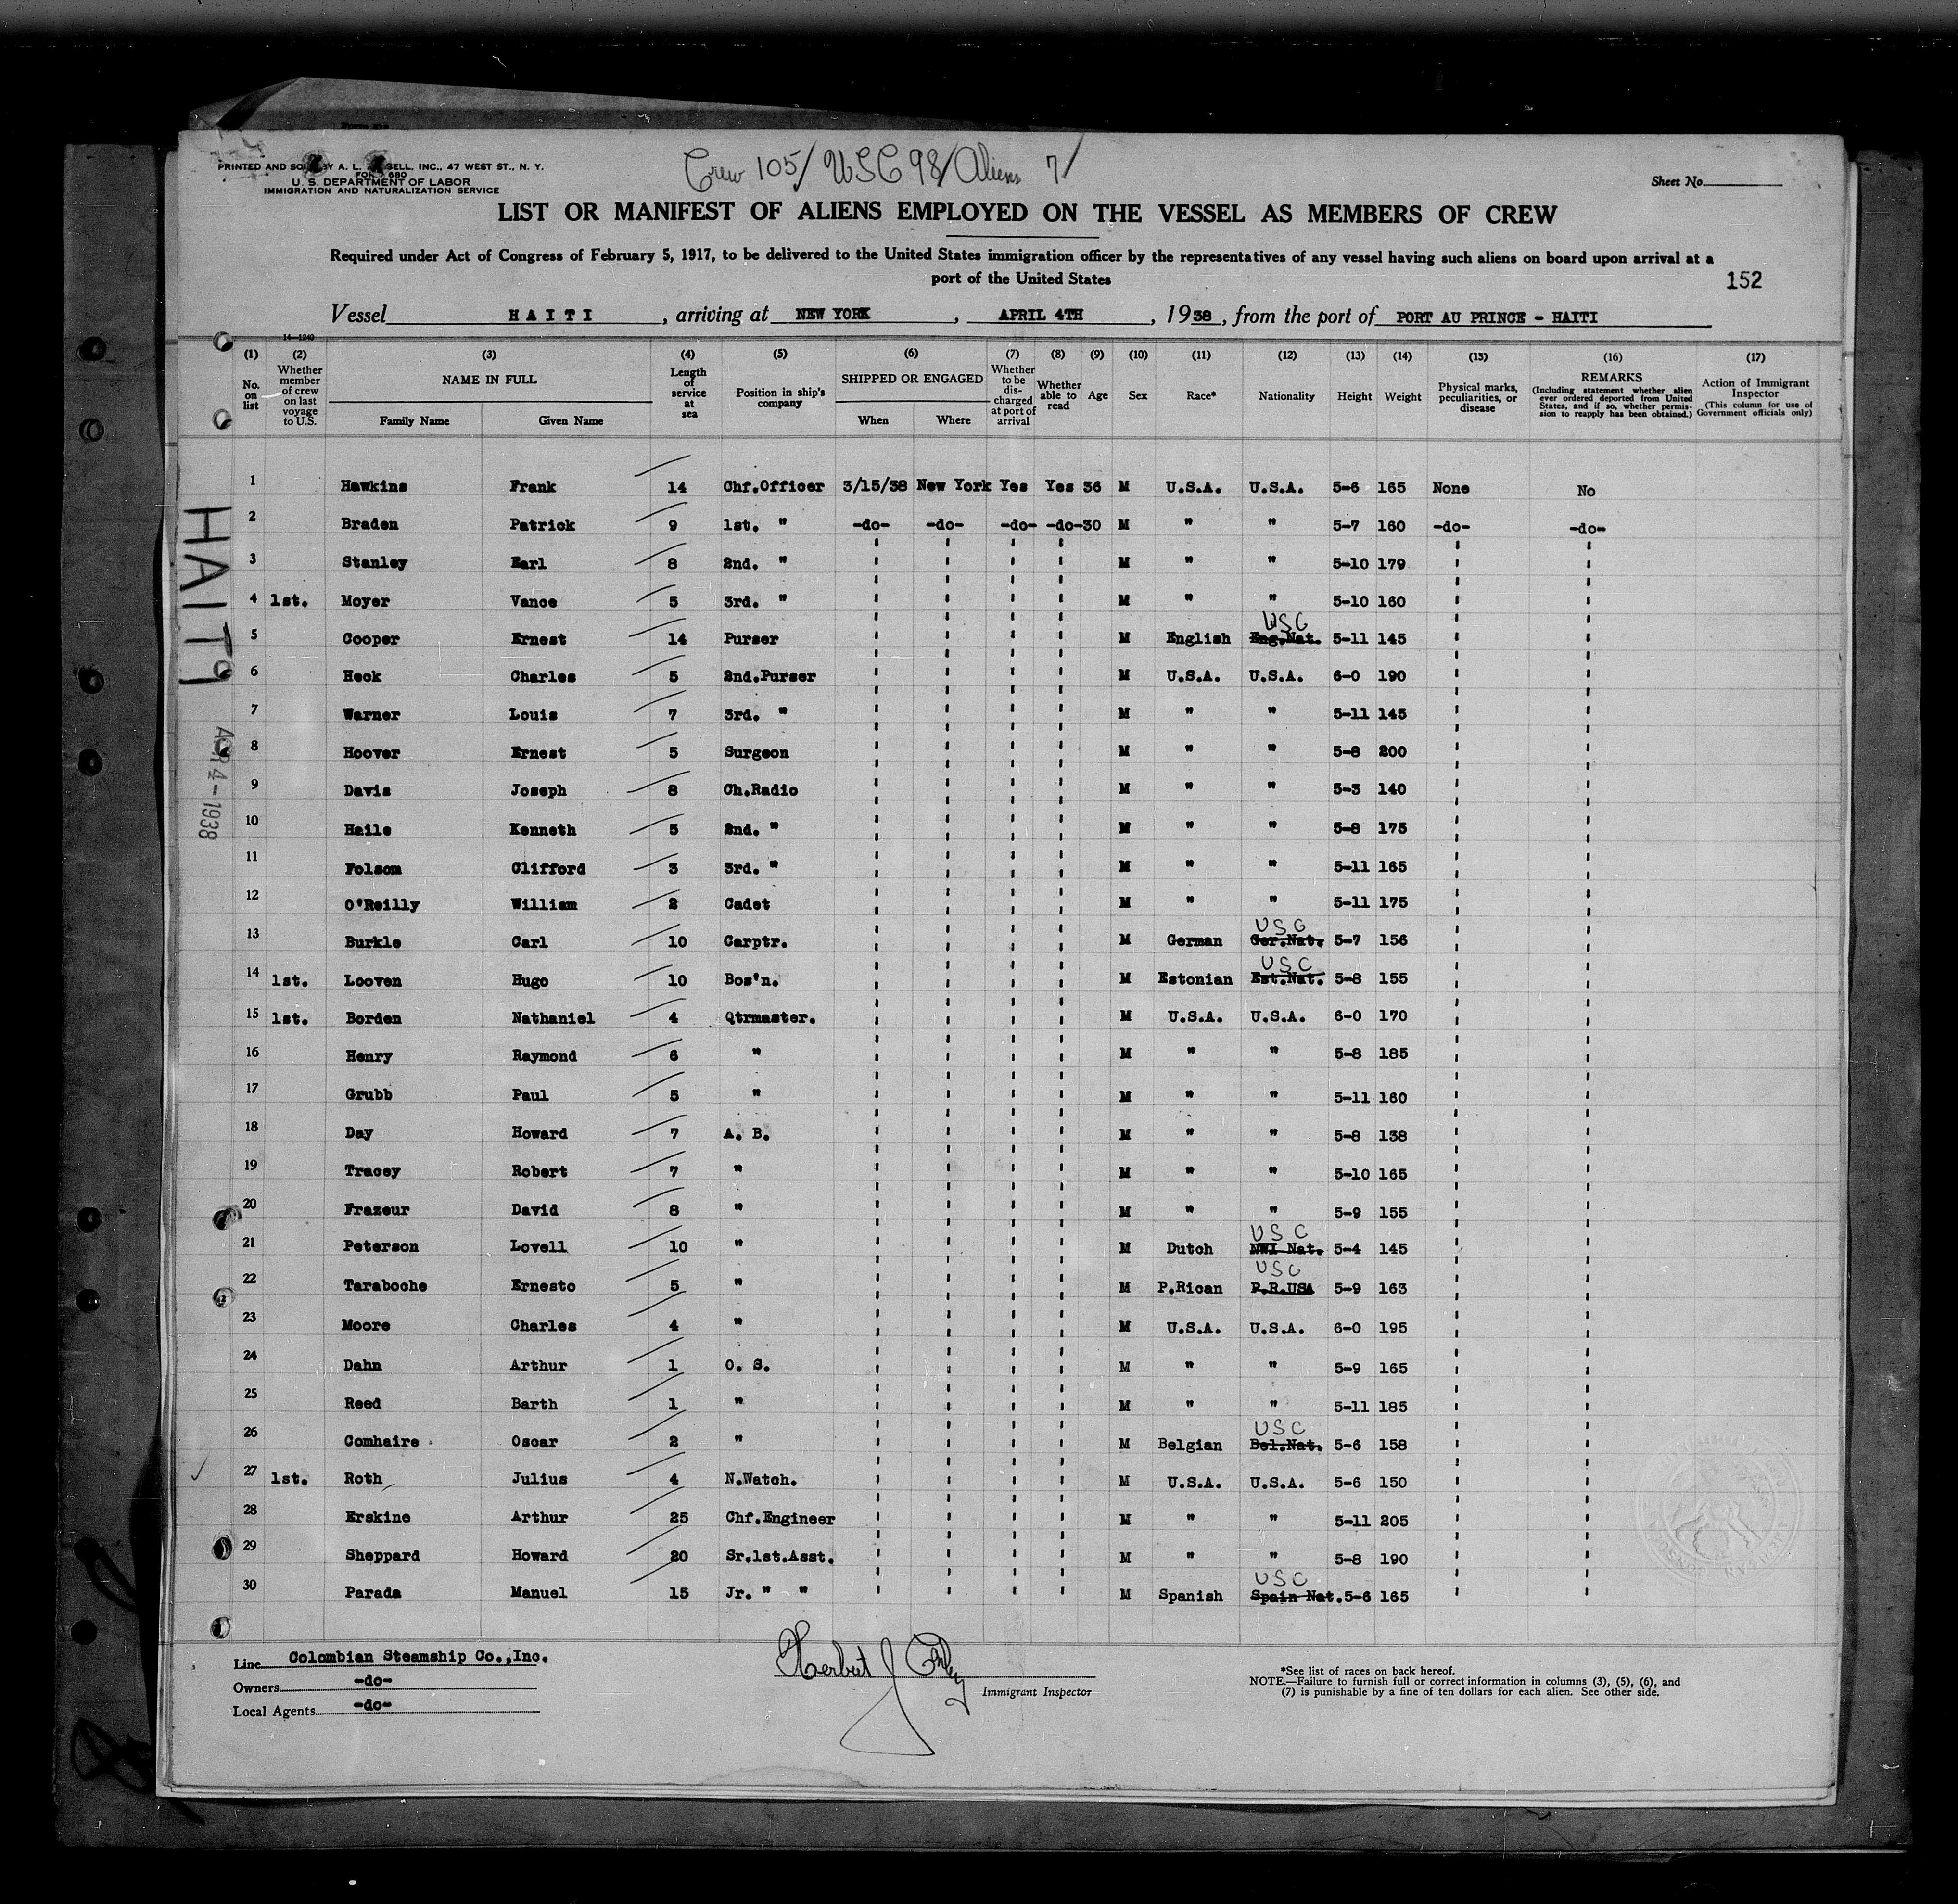 Crew 105/ USC 98/ Aliens 7/
PRINTED AND SOLD BY A. L. SELL, INC., 47 WEST ST., N. Y.
FORM 680
U. S. DEPARTMENT OF LABOR
IMMIGRATION AND NATURALIZATION SERVICE
Sheet No.
LIST OR MANIFEST OF ALIENS EMPLOYED ON THE VESSEL AS MEMBERS OF CREW
Required under Act of Congress of February 5, 1917, to be delivered to the United States immigration officer by the representatives of any vessel having such aliens on board upon arrival at a
port of the United States
152
Vessel HAITI, arriving at NEW YORK, APRIL 4TH, 1938, from the port of PORT AU PRINCE - HAITI
14-1240
(1) (2) (3) (4) (5) (6) (7) (8) (9) (10) (11) (12) (13) (14) (15) (16) (17)
No. on list Whether member of crew on last voyage to U.S. NAME IN FULL Family Name Given Name Length of service at sea Position in ship's company SHIPPED OR ENGAGED When Where Whether to be discharged at port of arrival Whether able to read Age Sex Race* Nationality Height Weight Physical marks, peculiarities, or disease REMARKS (Including statement whether alien ever ordered deported from United States, and if so, whether permission to reapply has been obtained.) Action of Immigrant Inspector (This column for use of Government officials only)
1 Hawkins Frank 14 Chf.Officer 3/15/38 New York Yes Yes 36 M U.S.A. U.S.A. 5-6 165 None No
2 Braden Patrick 9 1st. " -do- -do- -do- -do- 30 M " " 5-7 160 -do- -do-
3 Stanley Earl 8 2nd. " M " " 5-10 179
4 1st. Moyer Vance 5 3rd. " M " " 5-10 160
5 Cooper Ernest 14 Purser M English Eng.Nat. USC 5-11 145
6 Heck Charles 5 2nd.Purser M U.S.A. U.S.A. 6-0 190
7 Warner Louis 7 3rd. " M " " 5-11 145
8 Hoover Ernest 5 Surgeon M " " 5-8 200
9 Davis Joseph 8 Ch.Radio M " " 5-3 140
10 Haile Kenneth 5 2nd. " M " " 5-8 175
11 Folsom Clifford 3 3rd. " M " " 5-11 165
12 O'Reilly William 2 Cadet M " " 5-11 175
13 Burkle Carl 10 Carptr. M German Ger.Nat. USC 5-7 156
14 1st. Looven Hugo 10 Bos'n. M Estonian Est.Nat. USC 5-8 155
15 1st. Borden Nathaniel 4 Qtrmaster. M U.S.A. U.S.A. 6-0 170
16 Henry Raymond 6 " M " " 5-8 185
17 Grubb Paul 5 " M " " 5-11 160
18 Day Howard 7 A. B. M " " 5-8 138
19 Tracey Robert 7 " M " " 5-10 165
20 Frazeur David 8 " M " " 5-9 155
21 Peterson Lovell 10 " M Dutch NWI Nat. USC 5-4 145
22 Taraboche Ernesto 5 " M P.Rican P.R.USA USC 5-9 163
23 Moore Charles 4 " M U.S.A. U.S.A. 6-0 195
24 Dahn Arthur 1 O. S. M " " 5-9 165
25 Reed Barth 1 " M " " 5-11 185
26 Comhaire Oscar 2 " M Belgian Bel.Nat. USC 5-6 158
27 1st. Roth Julius 4 N.Watch. M U.S.A. U.S.A. 5-6 150
28 Erskine Arthur 25 Chf.Engineer M " " 5-11 205
29 Sheppard Howard 20 Sr.1st.Asst. M " " 5-8 190
30 Parada Manuel 15 Jr. " " M Spanish Spain Nat. USC 5-6 165
HAITI
APR 4-1938
Line Colombian Steamship Co.,Inc.
Owners -do-
Local Agents -do-
Herbert J
Immigrant Inspector
*See list of races on back hereof.
NOTE.—Failure to furnish full or correct information in columns (3), (5), (6), and
(7) is punishable by a fine of ten dollars for each alien. See other side.